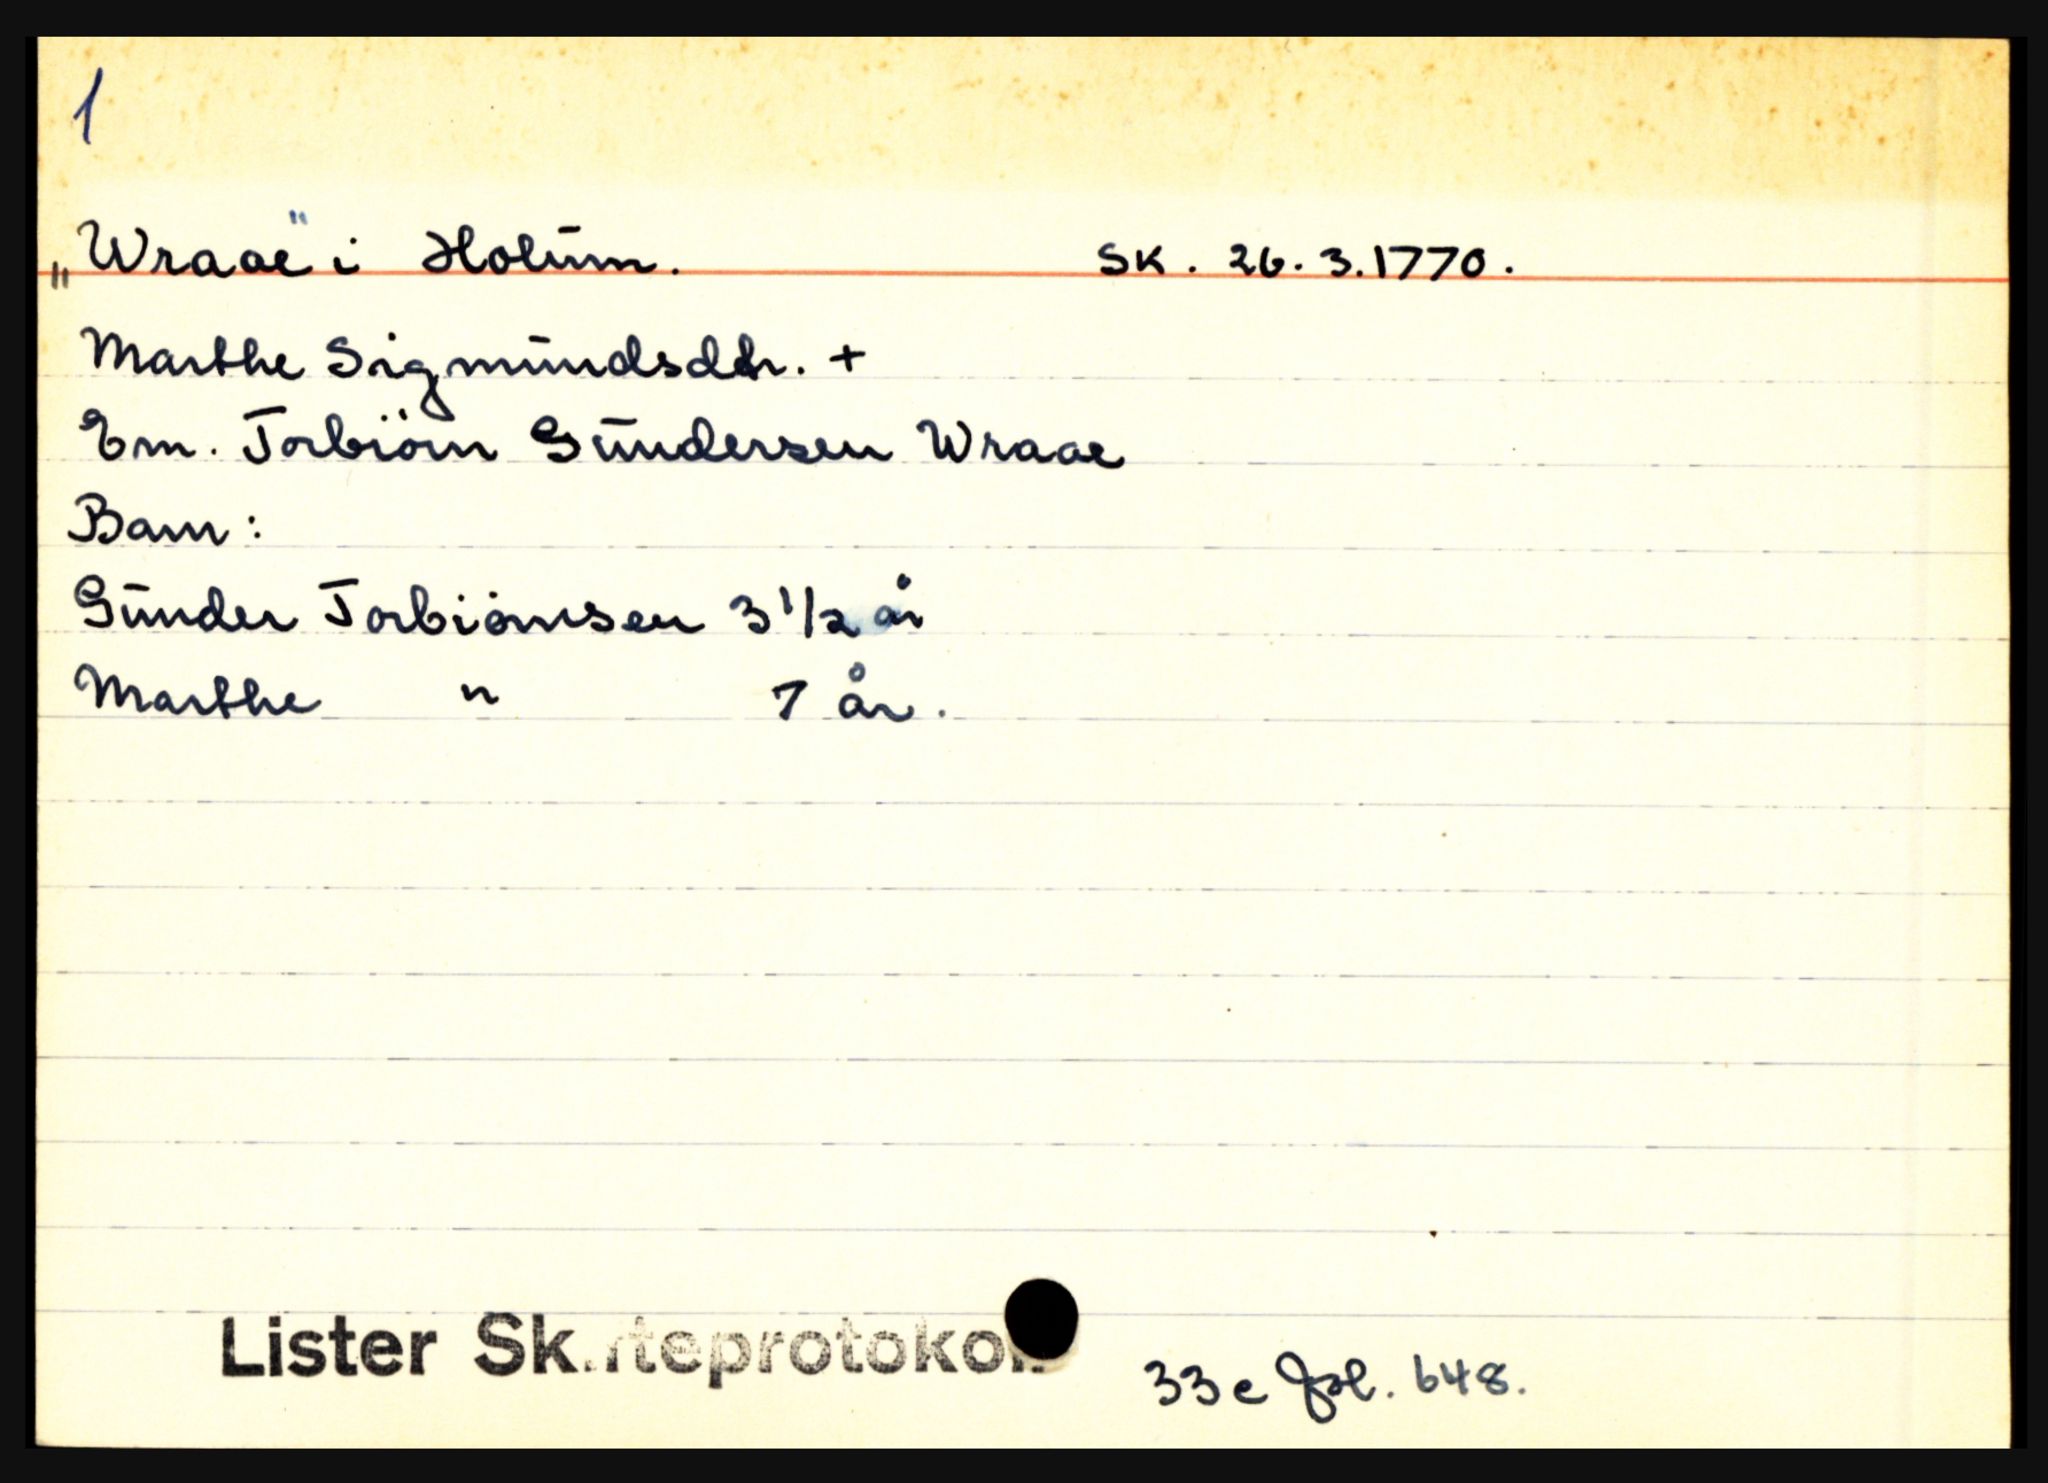 1
„Wraae" i Holum. SK. 26.3.1770.
Marthe Sigmundsdtr. +
Em. Torbiörn Gundersen Wraae
Barn:
Gunder Torbiörnsen 3 1/2 år
Marthe " 7 år.
Lister Skifteprotokoll
33 c fol. 648.